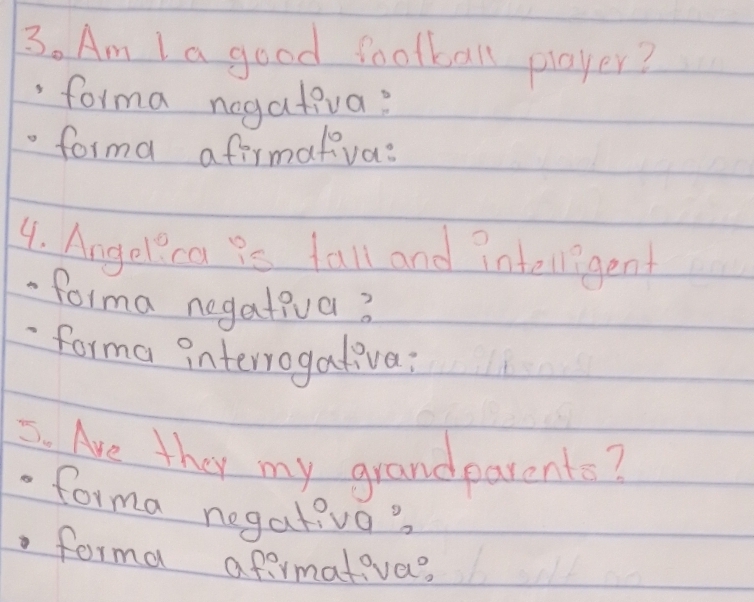 3. Am I a good football player?
• forma negativa:
• forma afirmativa:
4. Angelica is tall and intelligent
- forma negativa:
- forma interrogativa:
5. Are they my grandparents?
• forma negativa:
• forma afirmativa: